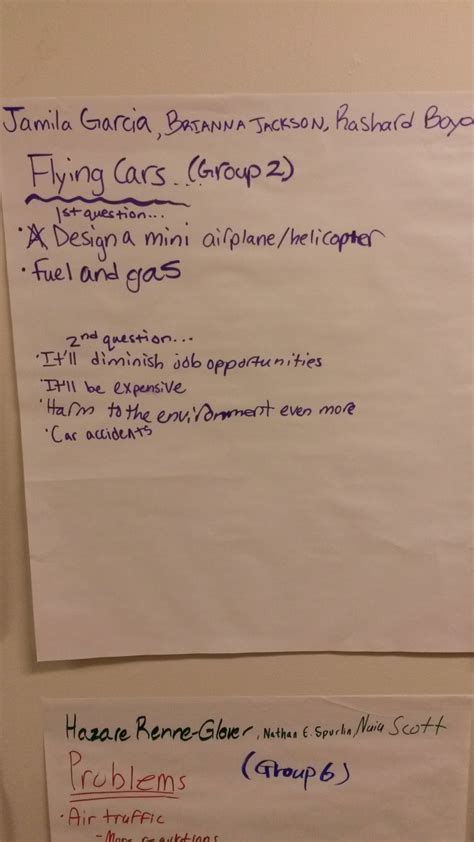 Jamila Garcia, BRIANNA JACKSON, Rashard Boyd
Flying Cars... (Group 2)
1st question...
· A Design a mini airplane/helicopter
· fuel and gas
2nd question...
· It'll diminish job opportunities
· It'll be expensive
· Harm to the environment even more
· Car accidents
Hazare Renne-Glover, Nathan E. Spurlin, Naia Scott
Problems (Group 6)
· Air traffic
- More regulations